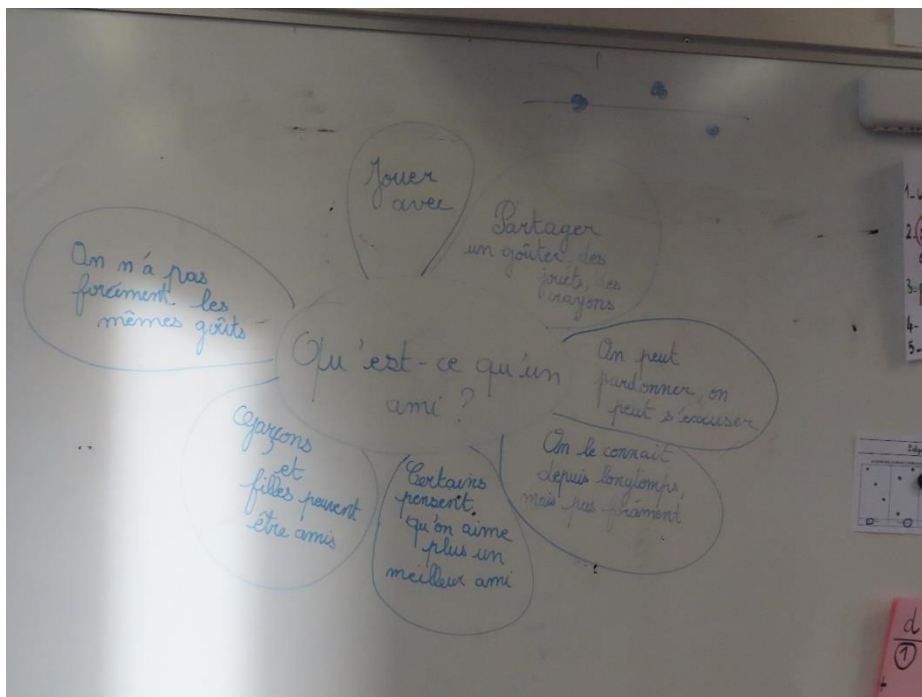 Qu'est-ce qu'un
ami ?
Jouer
avec
Partager
un goûter, des
jouets, des
crayons
On peut
pardonner, on
peut s'excuser
On le connait
depuis longtemps,
mais pas forcément
Certains
pensent
qu'on aime
plus un
meilleur ami
Garçons
et
filles peuvent
être amis
On n'a pas
forcément les
mêmes goûts
1-
2.
3-
4-
5-
d
1